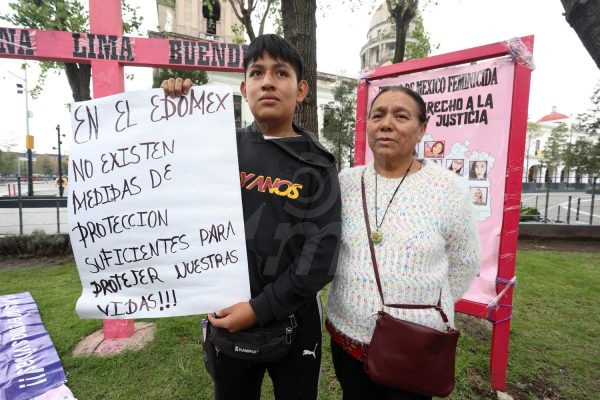 NA LIMA BUENDI
EN EL EDOMEX
NO EXISTEN
MEDIDAS DE
PROTECCION
SUFICIENTES PARA
PROTEJER NUESTRAS
VIDAS!!!
YANOS
DE MÉXICO FEMINICIDA
DERECHO A LA
JUSTICIA